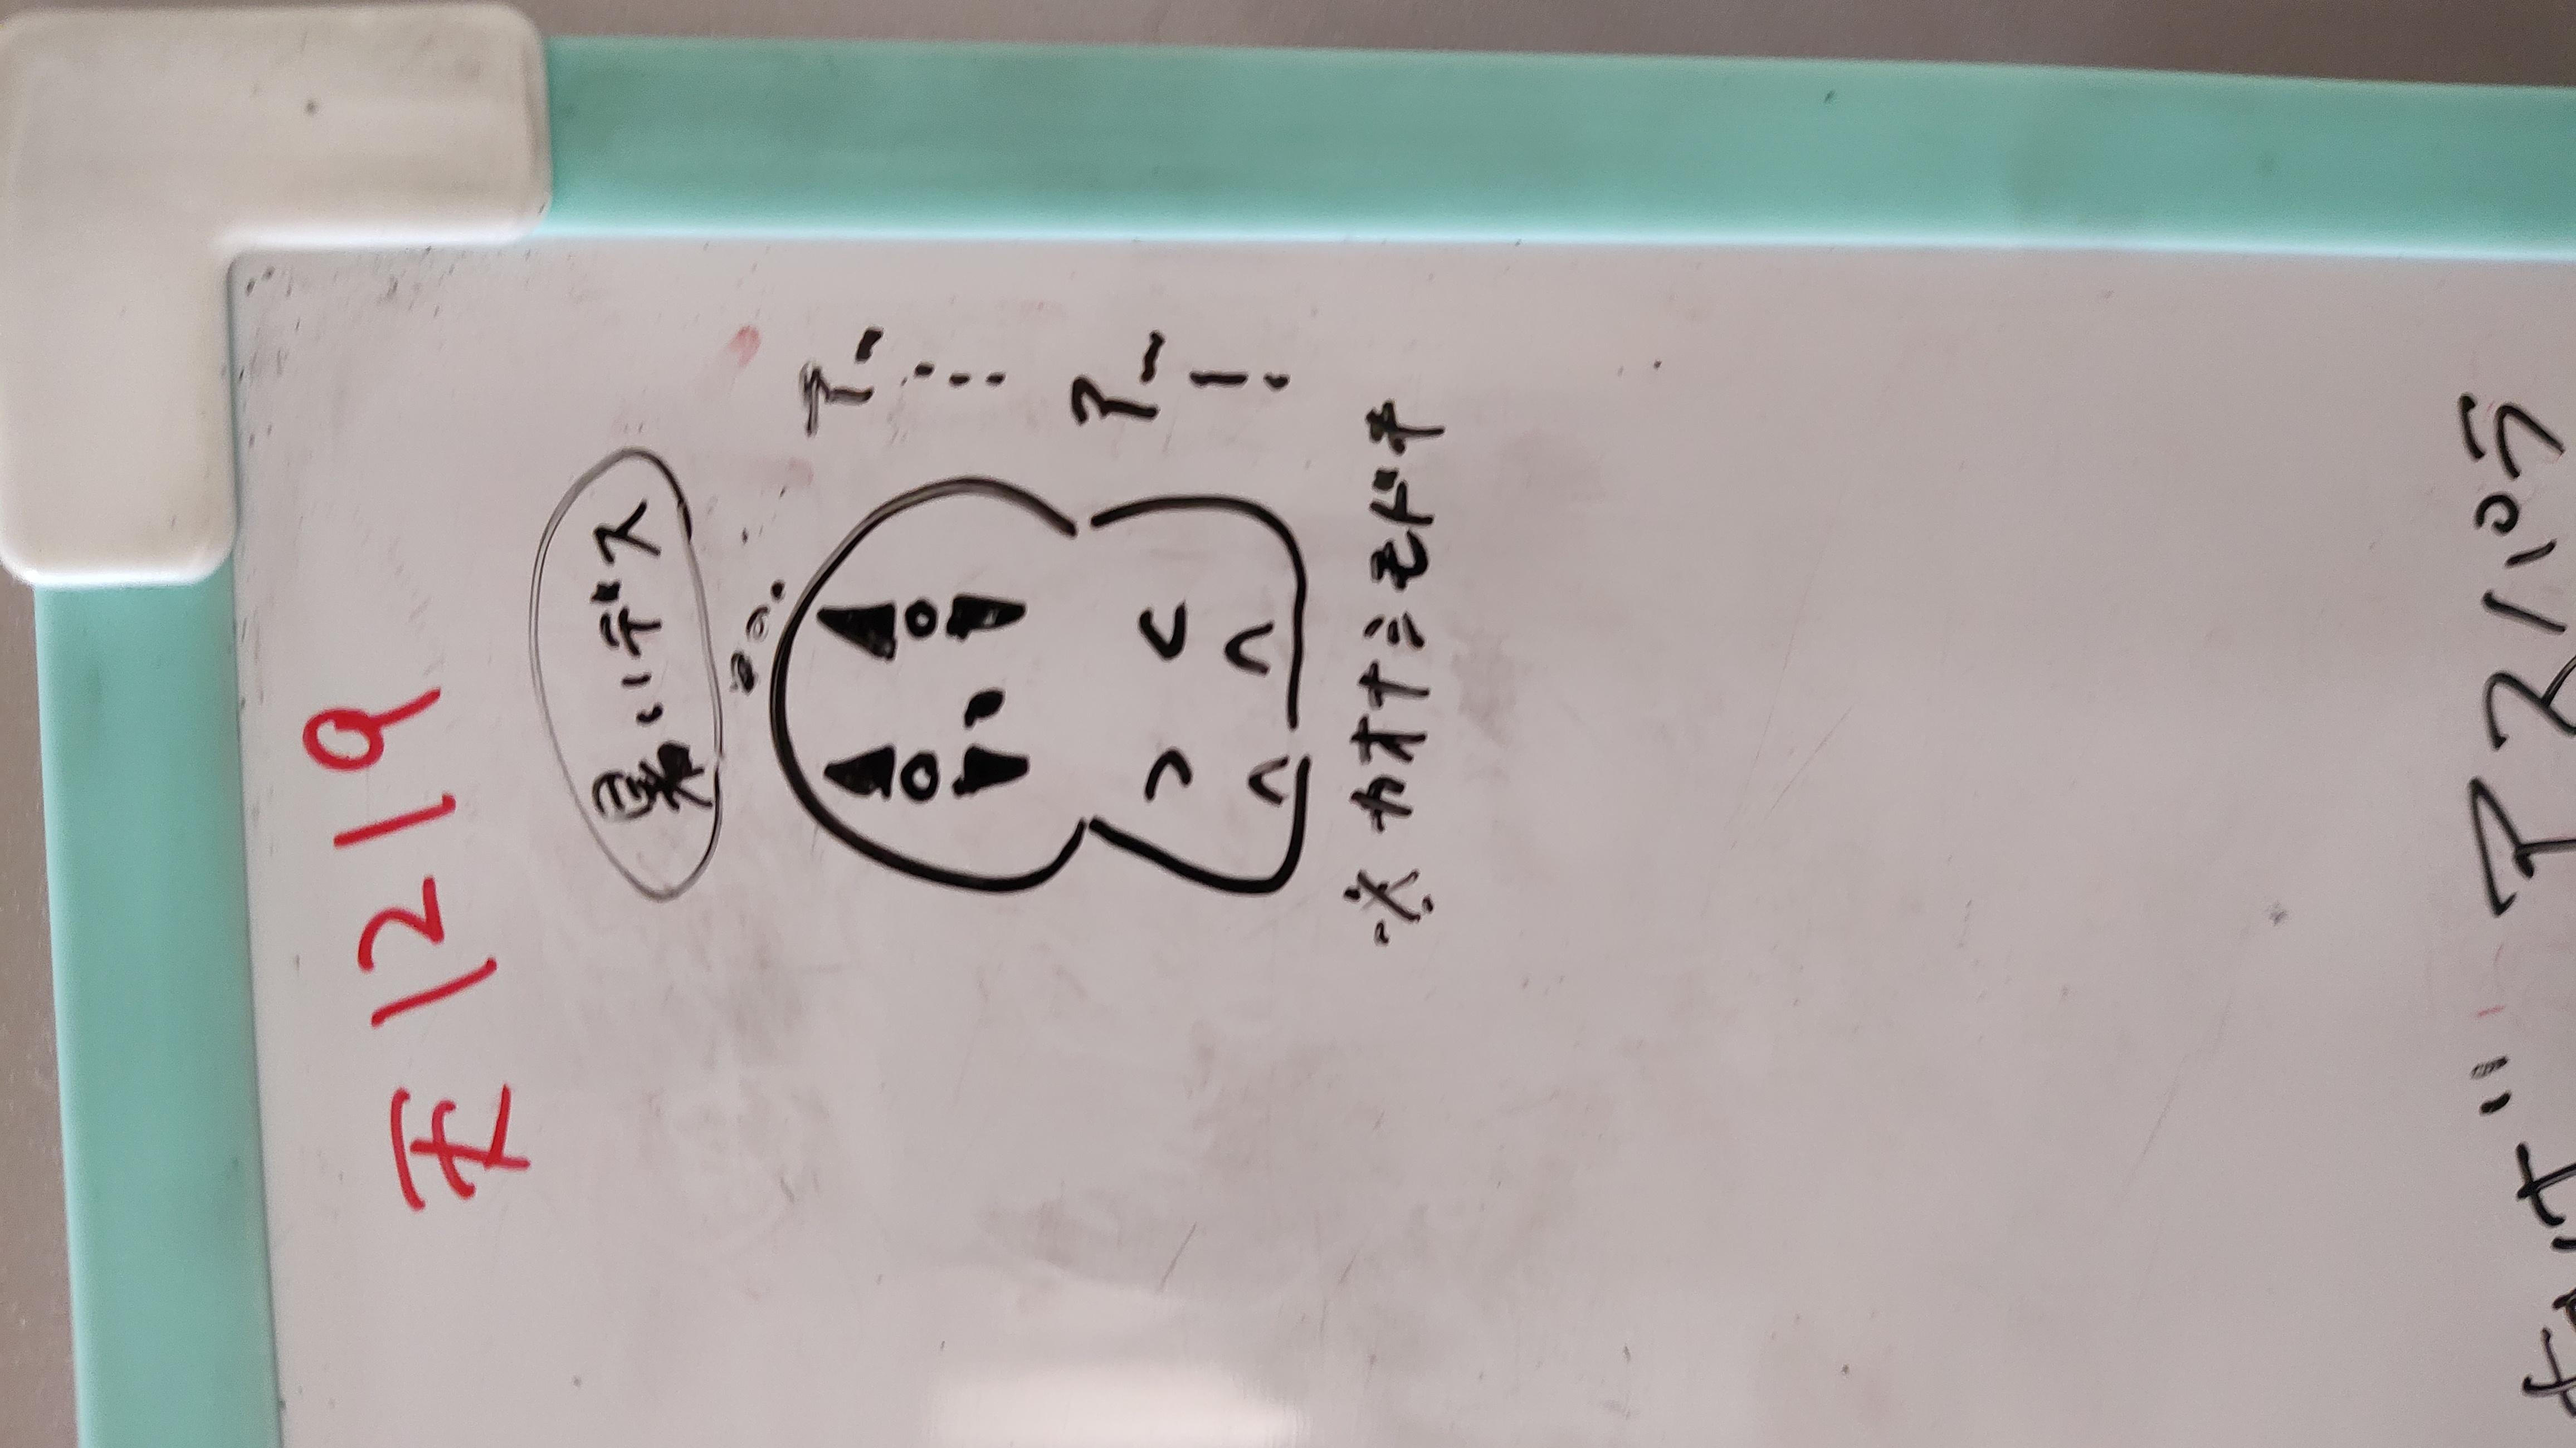 天1219
暑いデス
ア…
アー!
※カオナシモドキ
アスパラ